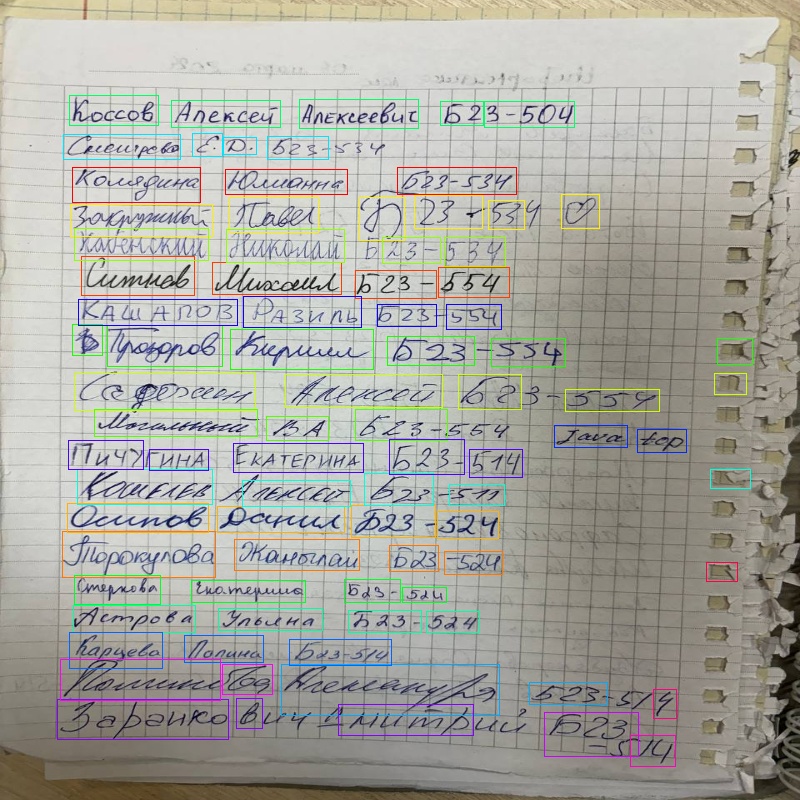 Коссов Алексей Алексеевич Б23-504
Е. Д. Б23-534
Колядина Юлианна Б23-534
Закружный Павел Б 23-534
Хабенский Николай Б23-534
Ситнев Михаил Б23-554
КАШАПОВ РАЗИЛЬ Б23-554
Прозоров Кирилл Б23-554
Алексей Б23-554
Могильный ВА Б23-554 Java top
ПИЧУГИНА ЕКАТЕРИНА Б23-514
Кошелев Алексей Б23-511
Осипов Данил Б23-524
Торокулова Жанылай Б23-524
Стеркова Екатерина Б23-524
Астрова Ульяна Б23-524
Карцева Полина Б23-514
Александра Б23-514
Заранкович Дмитрий Б23-514